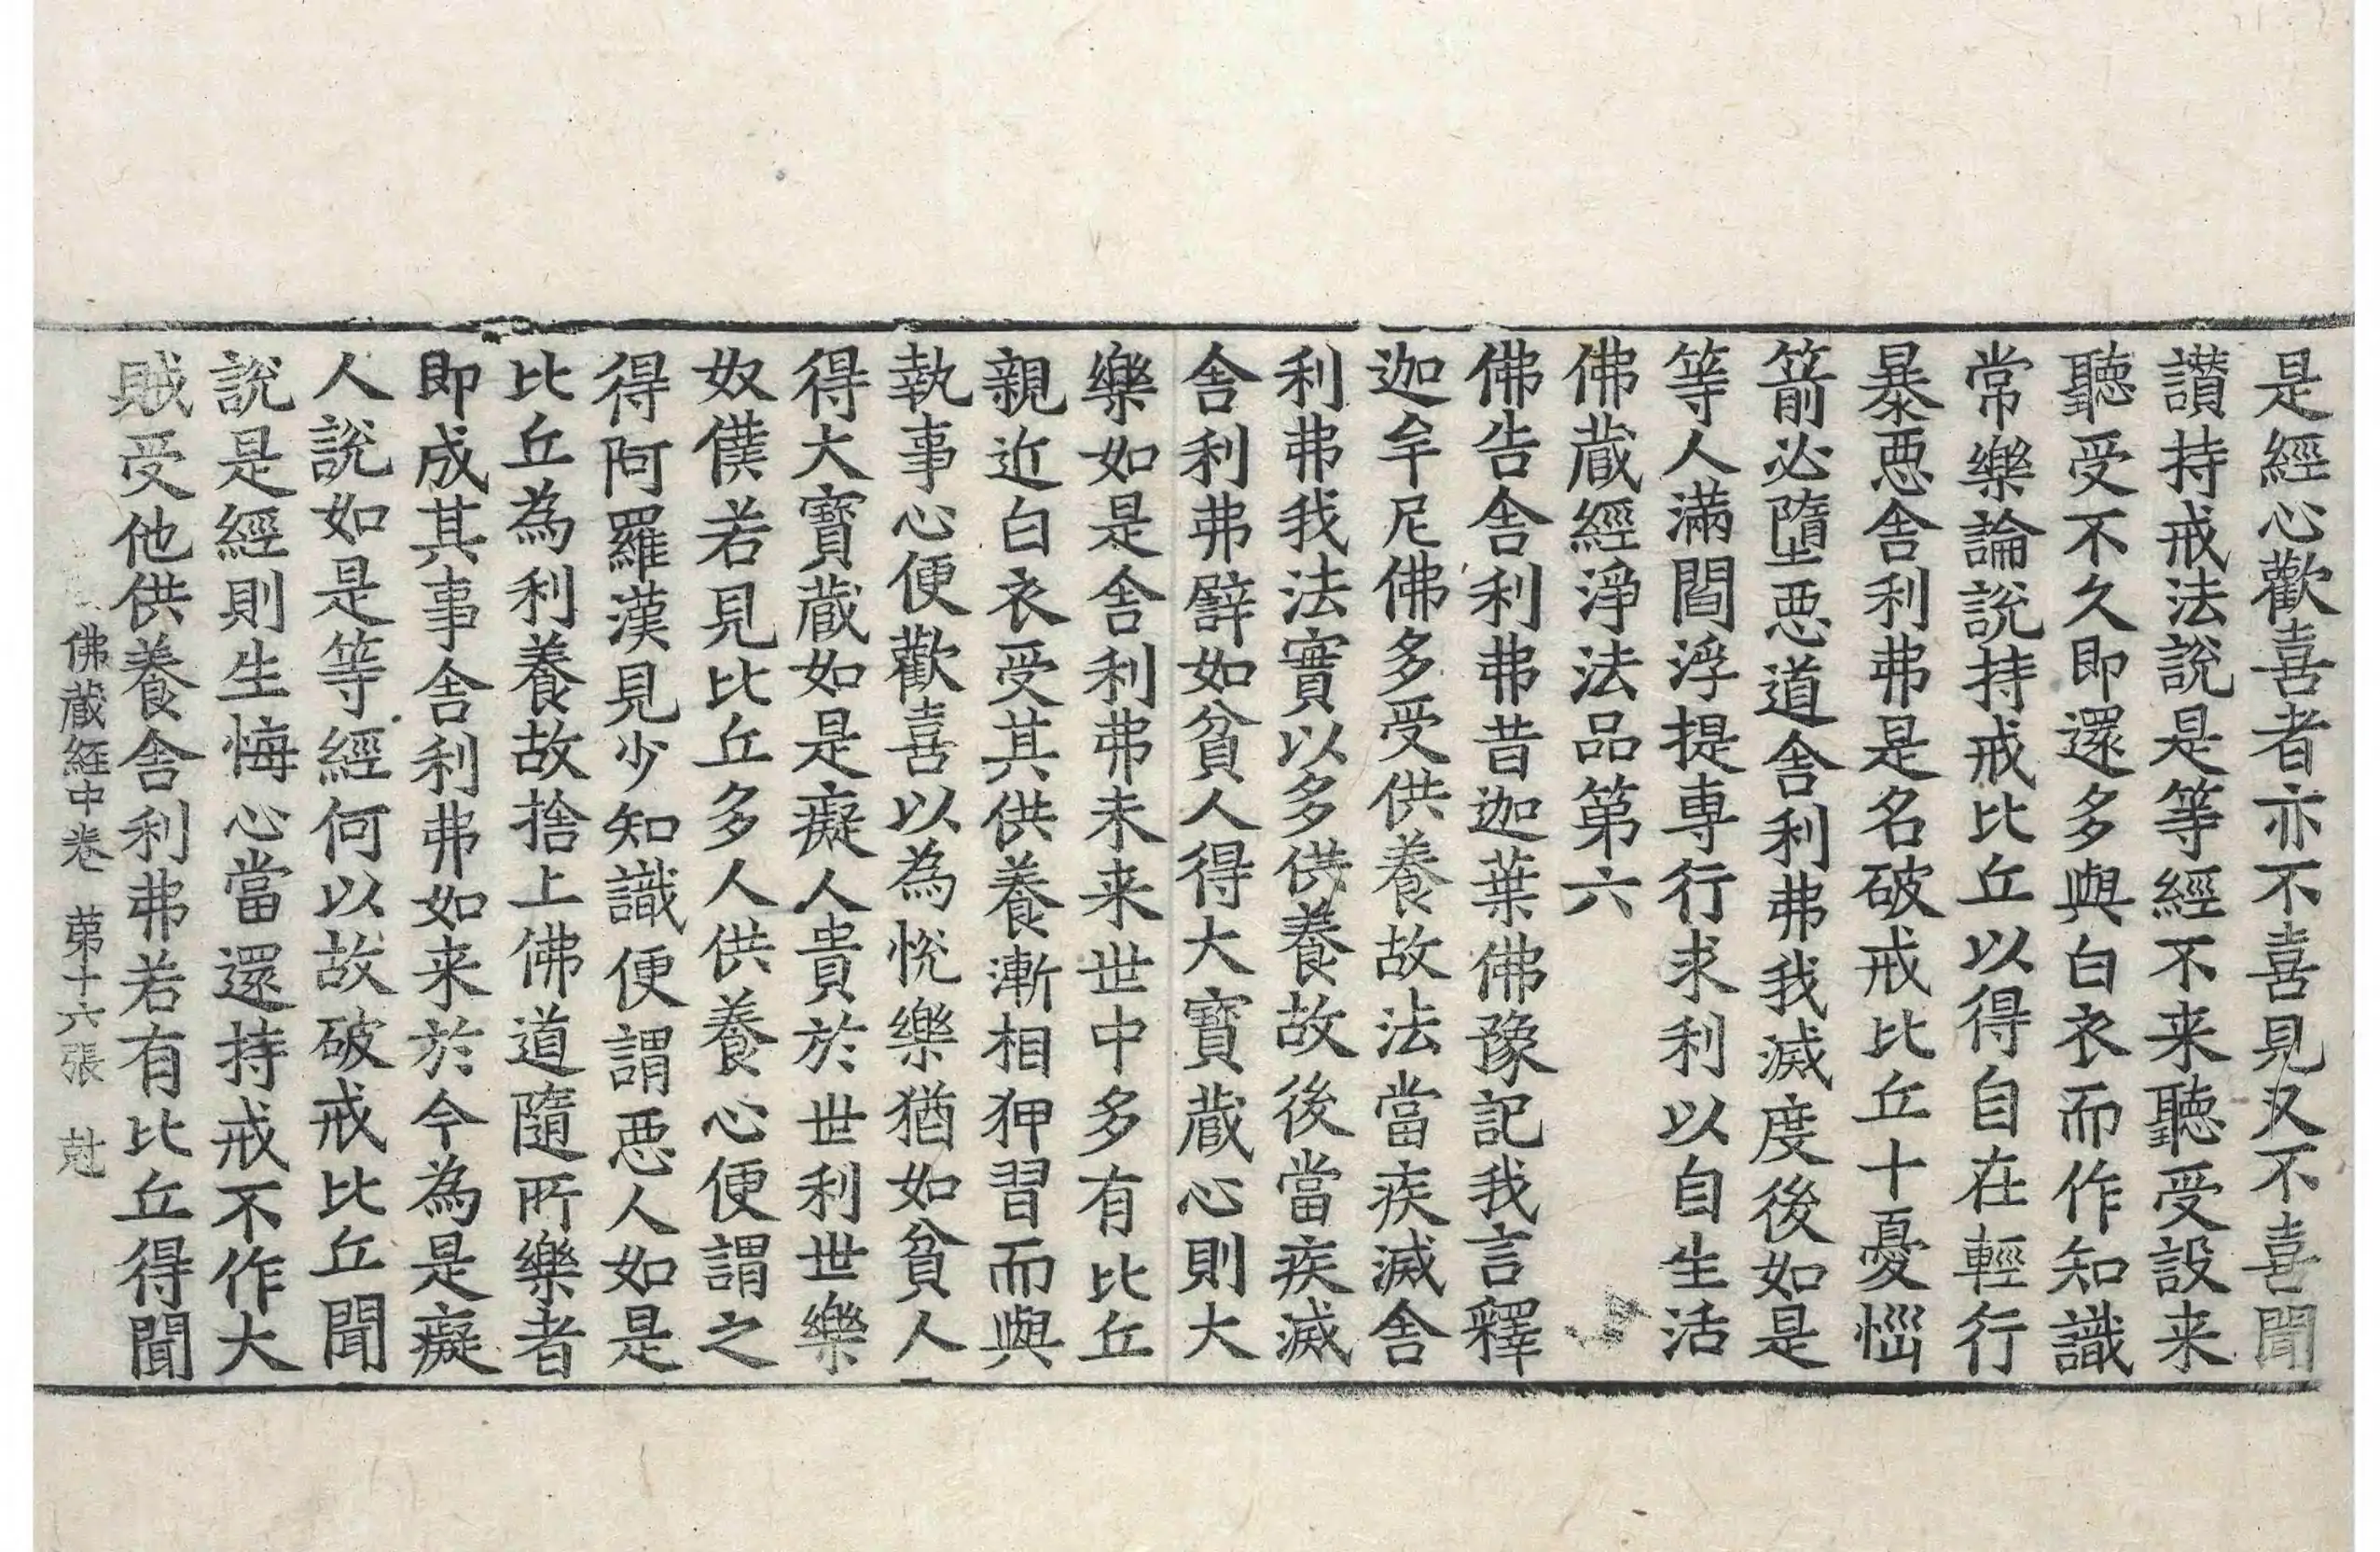 是經心歡喜者亦不喜見又不喜聞
讃持戒法說是等經不来聽受設来
聽受不久即還多與白衣而作知識
常樂論說持戒比丘以得自在輕行
暴惡舍利弗是名破戒比丘十憂惱
箭必墮惡道舍利弗我滅度後如是
等人滿閻浮提專行求利以自生活
佛蔵經淨法品第六
佛告舍利弗昔迦葉佛豫記我言釋
迦牟尼佛多受供養故法當疾滅舍
利弗我法實以多供養故後當疾滅
舍利弗譬如貧人得大寶蔵心則大
樂如是舍利弗未来世中多有比丘
親近白衣受其供養漸相狎習而與
執事心便歡喜以為悅樂猶如貧人
得大寶蔵如是癡人貴於世利世樂
奴僕若見比丘多人供養心便謂之
得阿羅漢見少知識便謂惡人如是
比丘為利養故捨上佛道隨所樂者
即成其事舍利弗如来於今為是癡
人說如是等經何以故破戒比丘聞
說是經則生悔心當還持戒不作大
賊受他供養舍利弗若有比丘得聞
佛蔵経中卷 苐十六張